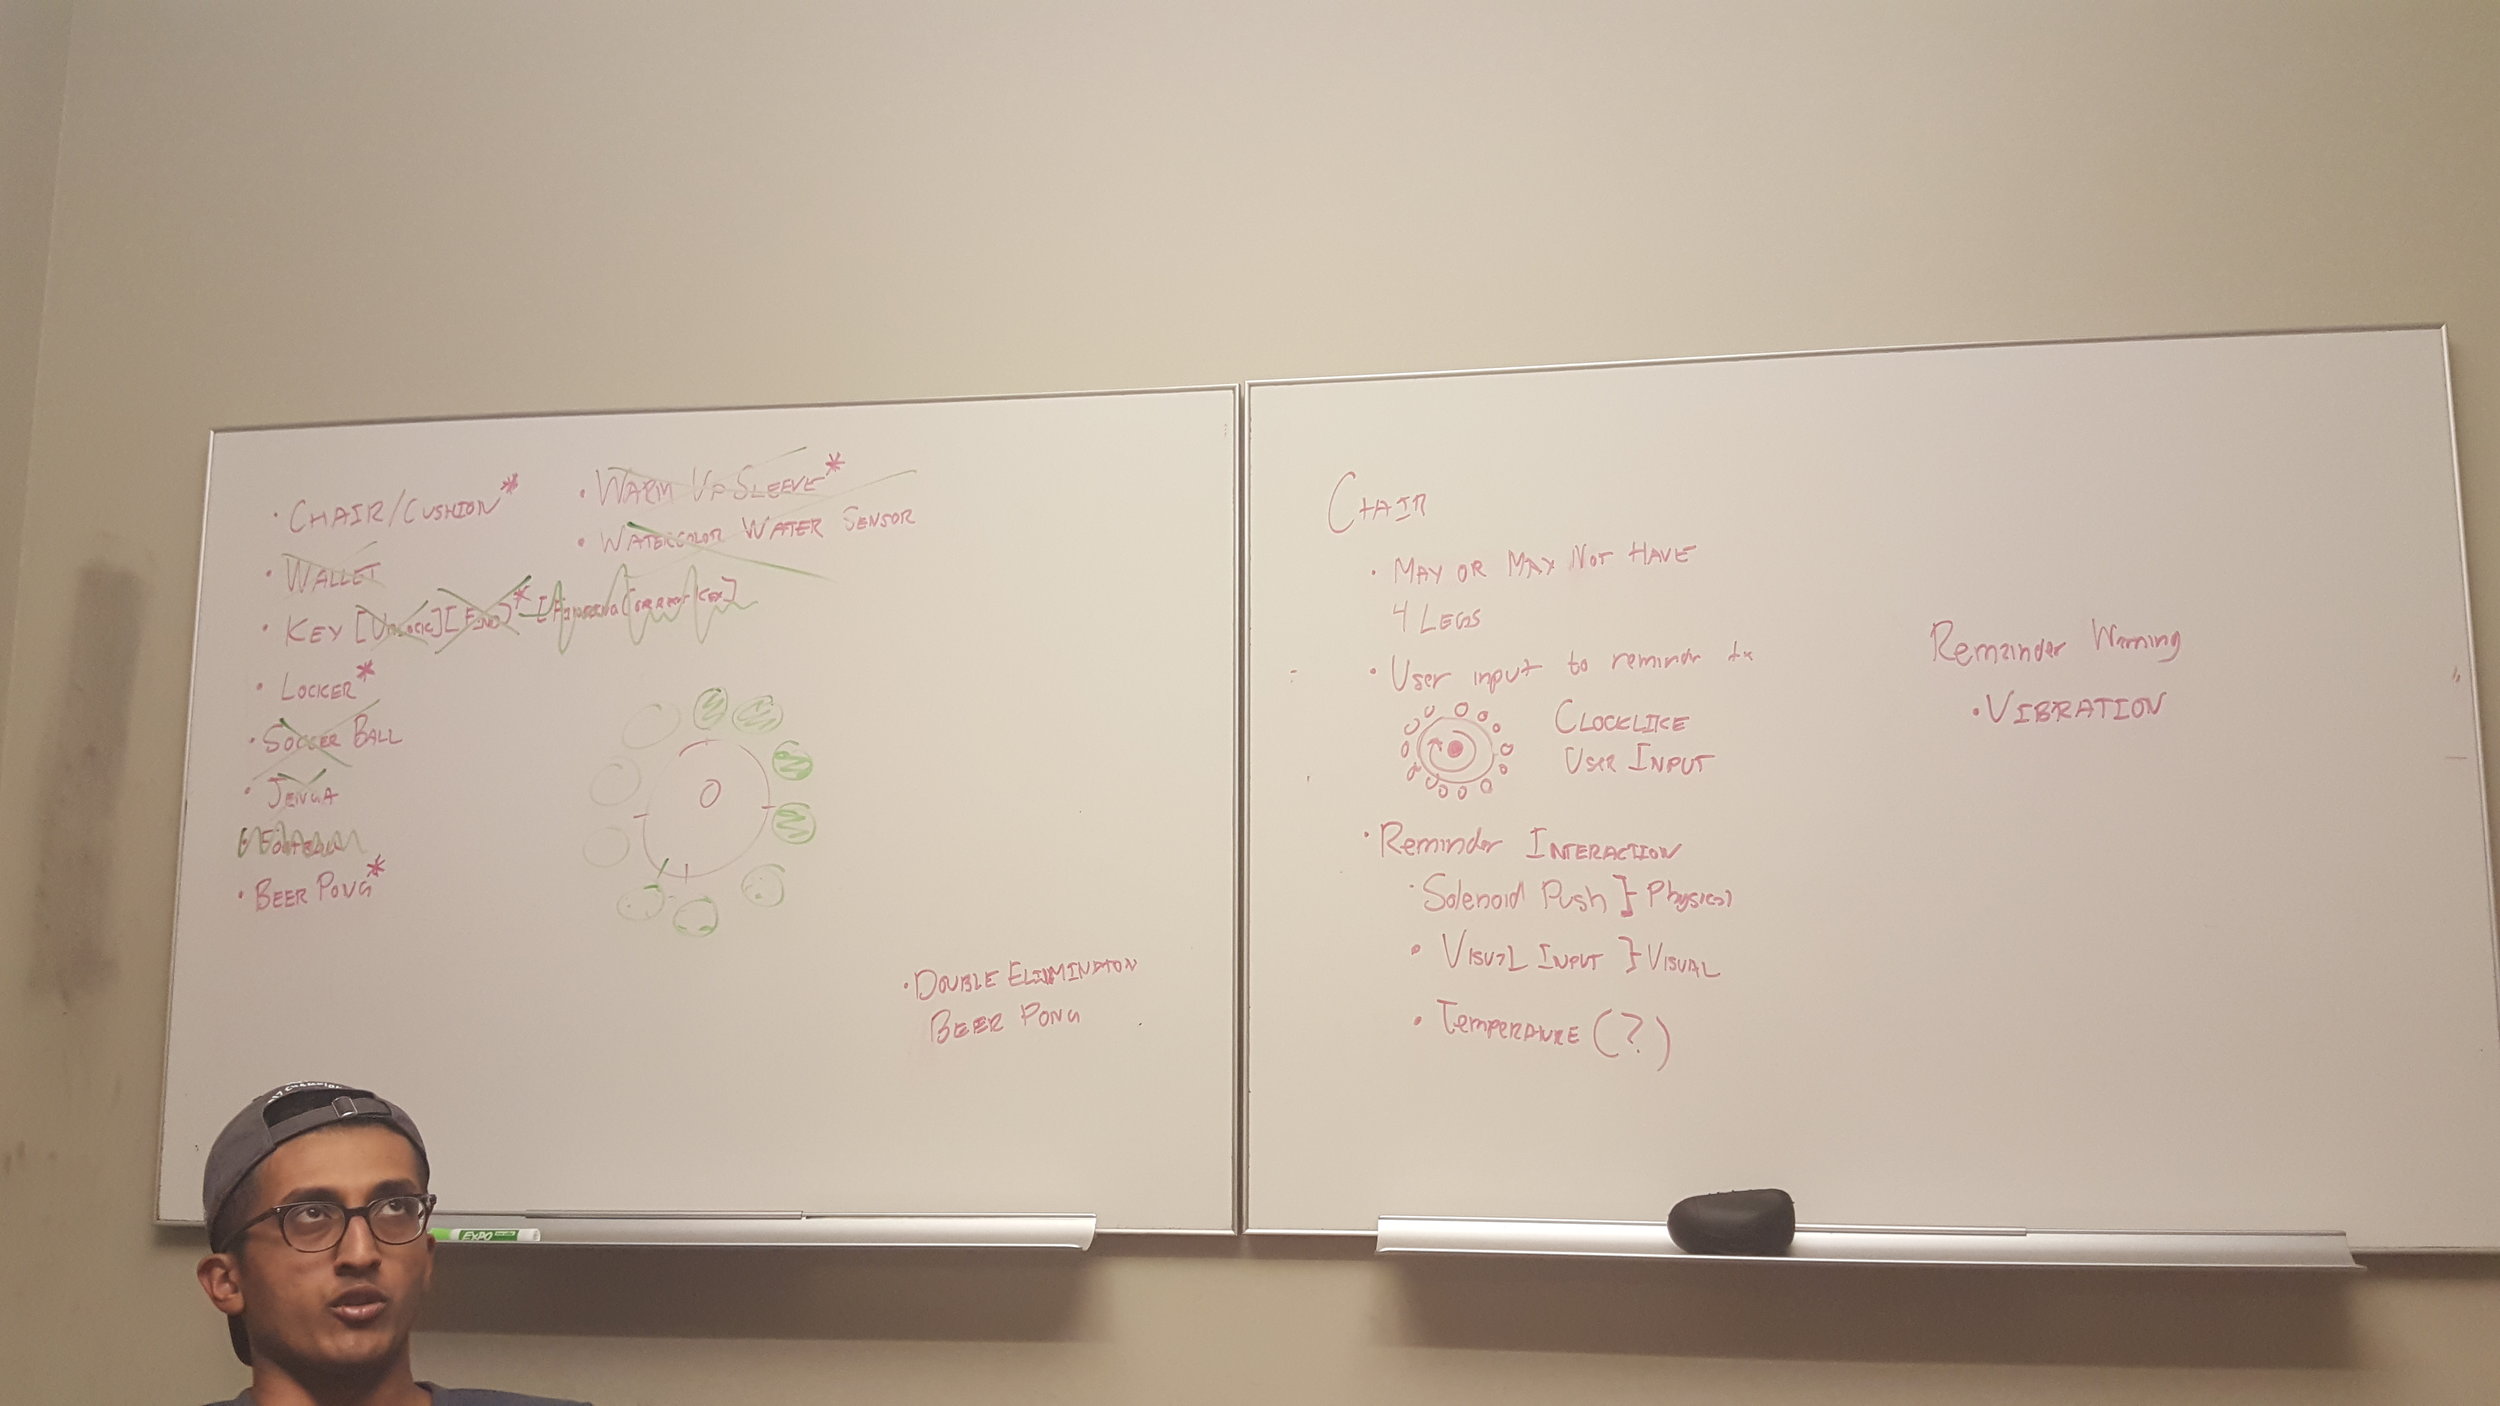 • CHAIR/CUSHION*
• WALLET
• KEY [UNLOCK][FIND]*
• LOCKER*
• SOCCER BALL
• JENGA
• BEER PONG*
• WARM UP SLEEVE*
• WATERCOLOR WATER SENSOR
• DOUBLE ELIMINATION
BEER PONG
EXPO
CHAIR
• MAY OR MAY NOT HAVE
4 LEGS
• User input to
CLOCKLIKE
USER INPUT
• Reminder INTERACTION
• Solenoid Push } Physical
• VISUAL INPUT } VISUAL
• TEMPERATURE (?)
Remainder Warning
• VIBRATION